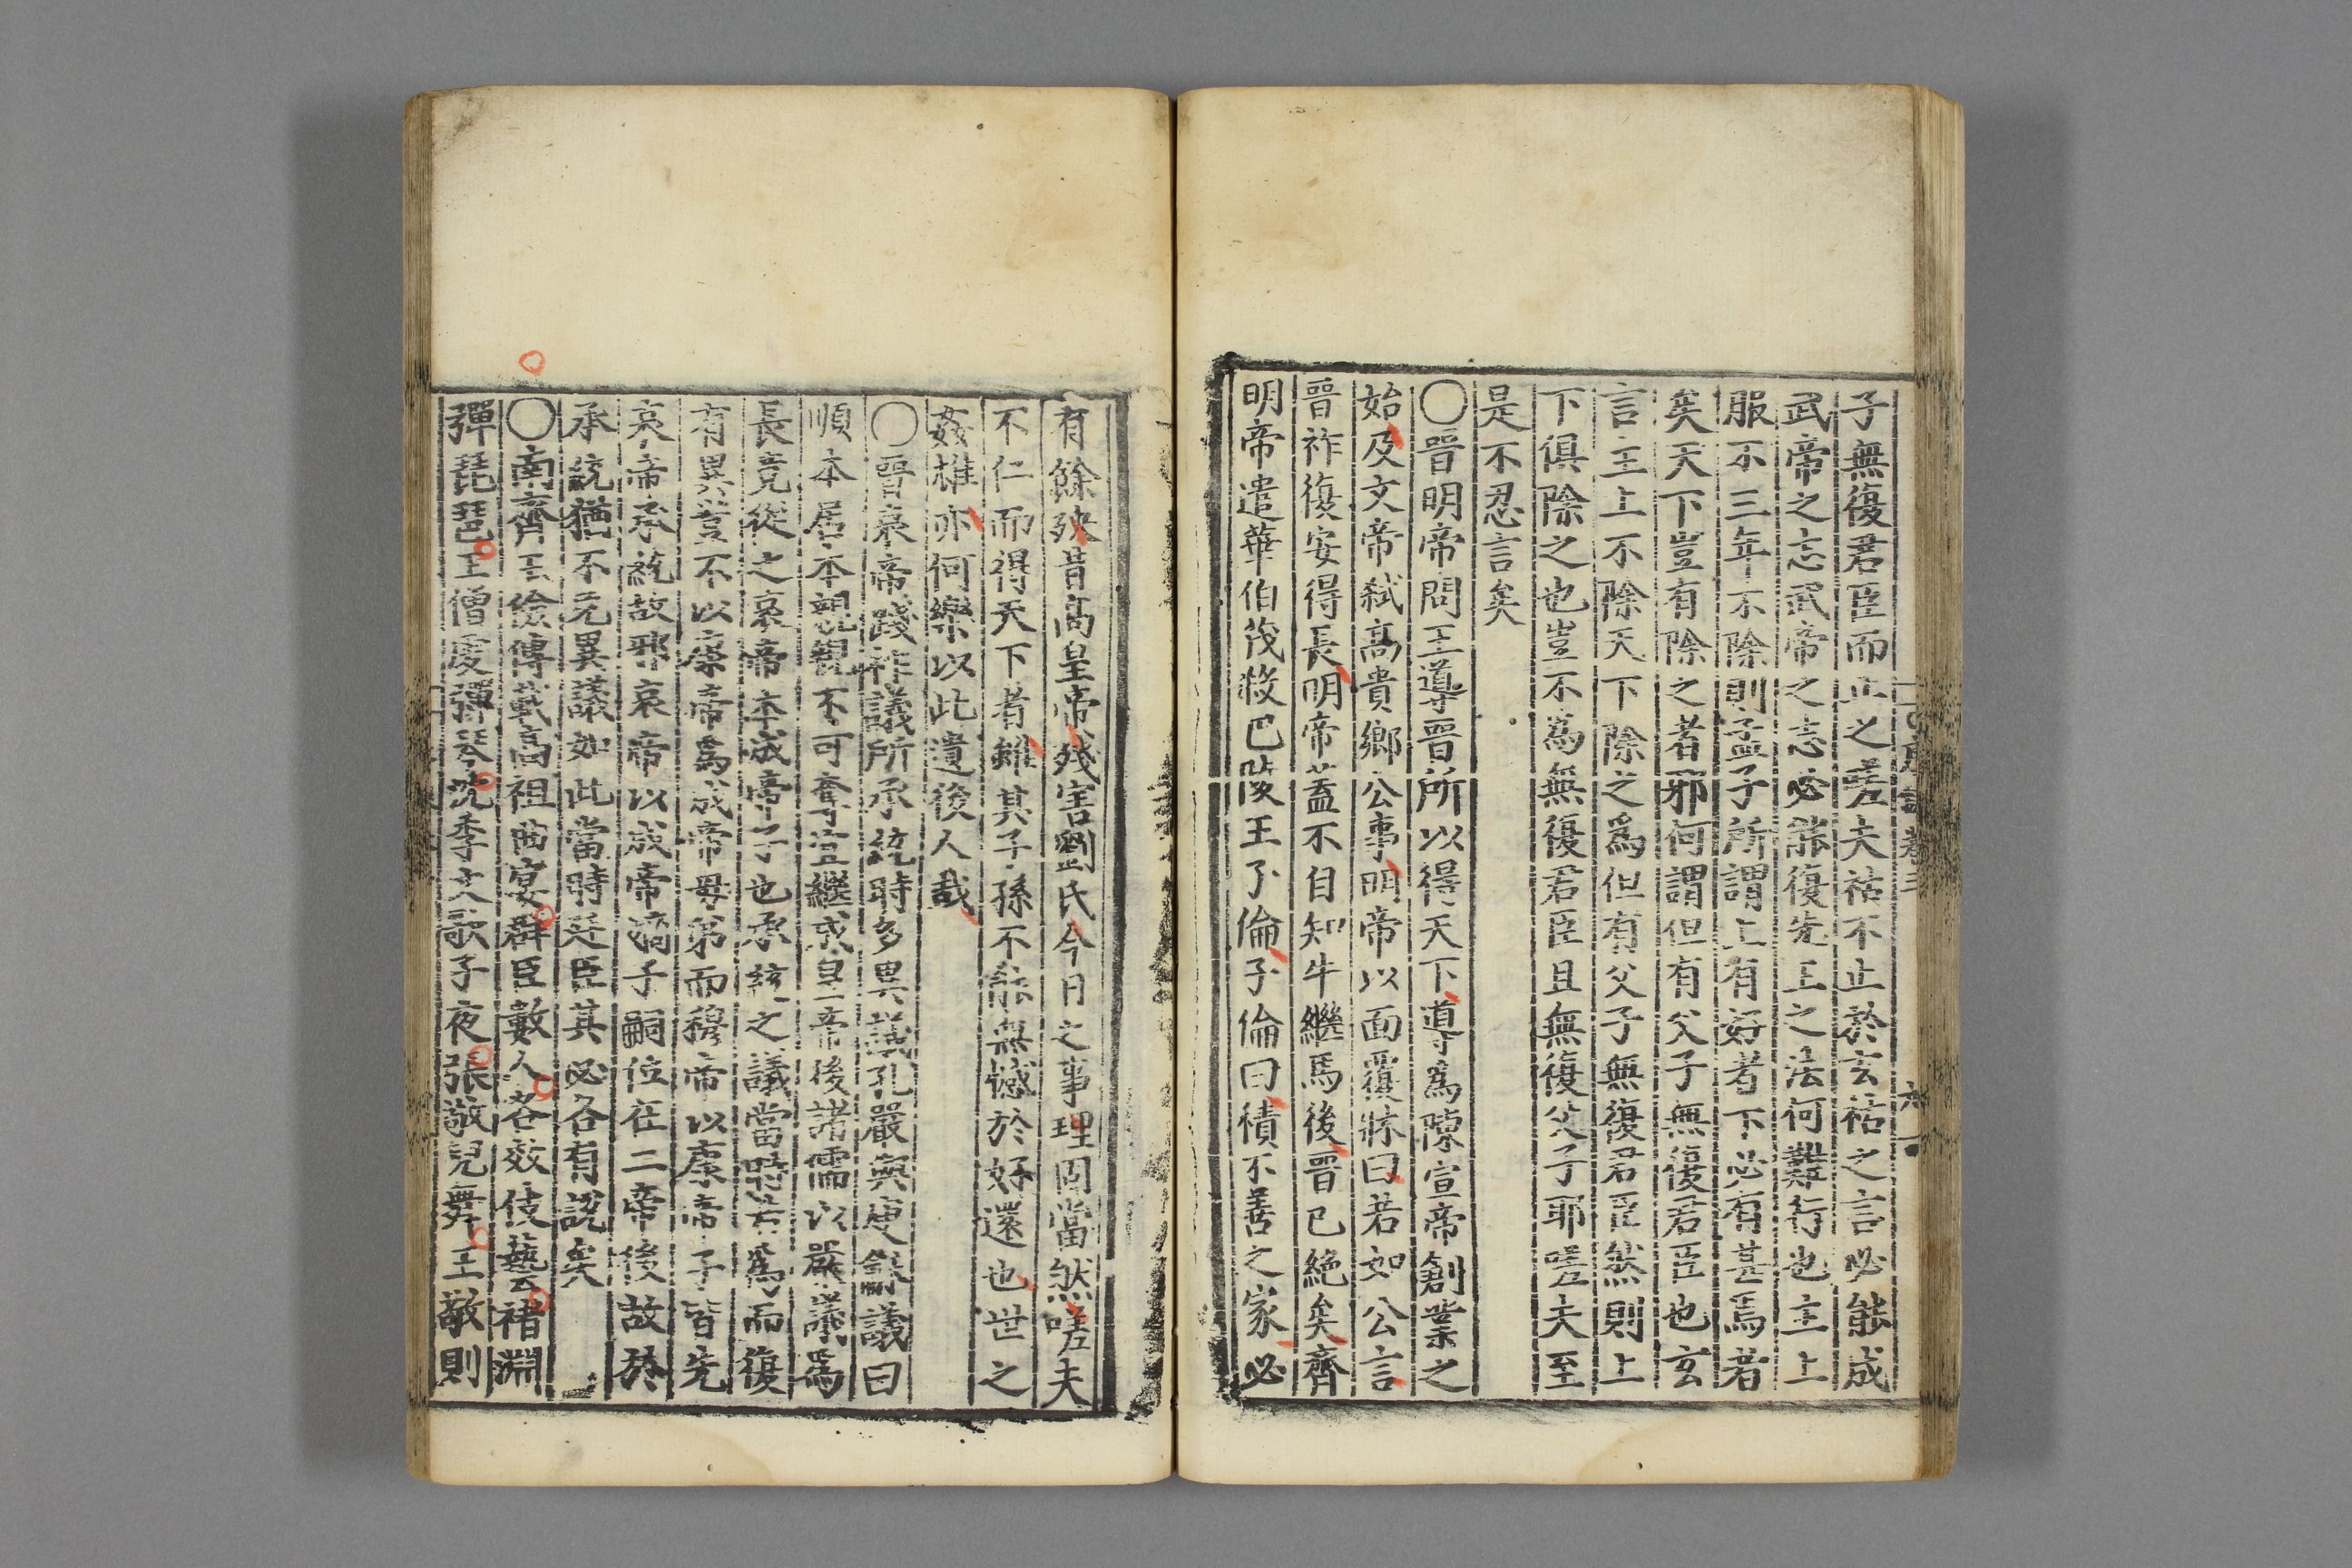 子無復君臣而止之嗟夫祜不止於玄祜之言必能成
武帝之志武帝之志必能復先王之法何難行也主上
服不三年不除則孟子所謂上有好者下必有甚焉者
矣天下豈有除之者邪何謂但有父子無復君臣也玄
言主上不除天下除之爲但有父子無復君臣然則上
下俱除之也豈不爲無復君臣且無復父子耶嗟夫至
是不忍言矣
〇晉明帝問王導晉所以得天下導爲陳宣帝創業之
始及文帝弑高貴鄉公事明帝以面覆牀曰若如公言
晉祚復安得長明帝蓋不自知牛繼馬後晉已絶矣齊
明帝遣華伯茂殺巴陵王子倫子倫曰積不善之家必
有餘殃昔高皇帝殘害劉氏今日之事理固當然嗟夫
不仁而得天下者雖其子孫不能無憾於好還也世之
姦雄亦何樂以此遺後人哉
〇晉哀帝踐祚議所承統時多異議孔嚴與庾龢議曰
順本居本親親不可奪宜繼成皇帝後諸儒以嚴議爲
長竟從之哀帝本成帝子也承統之議當時若爲而復
有異豈不以康帝爲成帝母弟而穆帝以康帝子皆先
哀帝承統故邪哀帝以成帝嫡子嗣位在二帝後故於
承統猶不无異議如此當時廷臣其必各有說矣
〇南齊王儉傳載高祖曲宴群臣數人各效伎藝褚淵
彈琵琶王僧虔彈琴沈季文歌子夜張敬兒舞王敬則